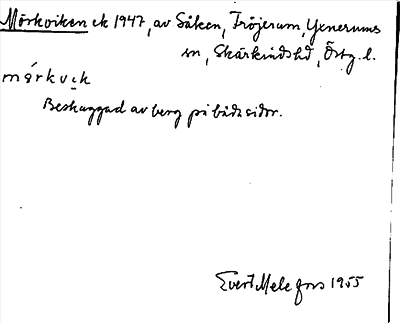 Mörkviken ek 1947, av Såken, Fröjerum, Yxnerums
sn, Skärkinds hd, Östg. l.
mǿrkvɩk
Beskuggad av berg på båda sidor.
Evert Melefors 1955